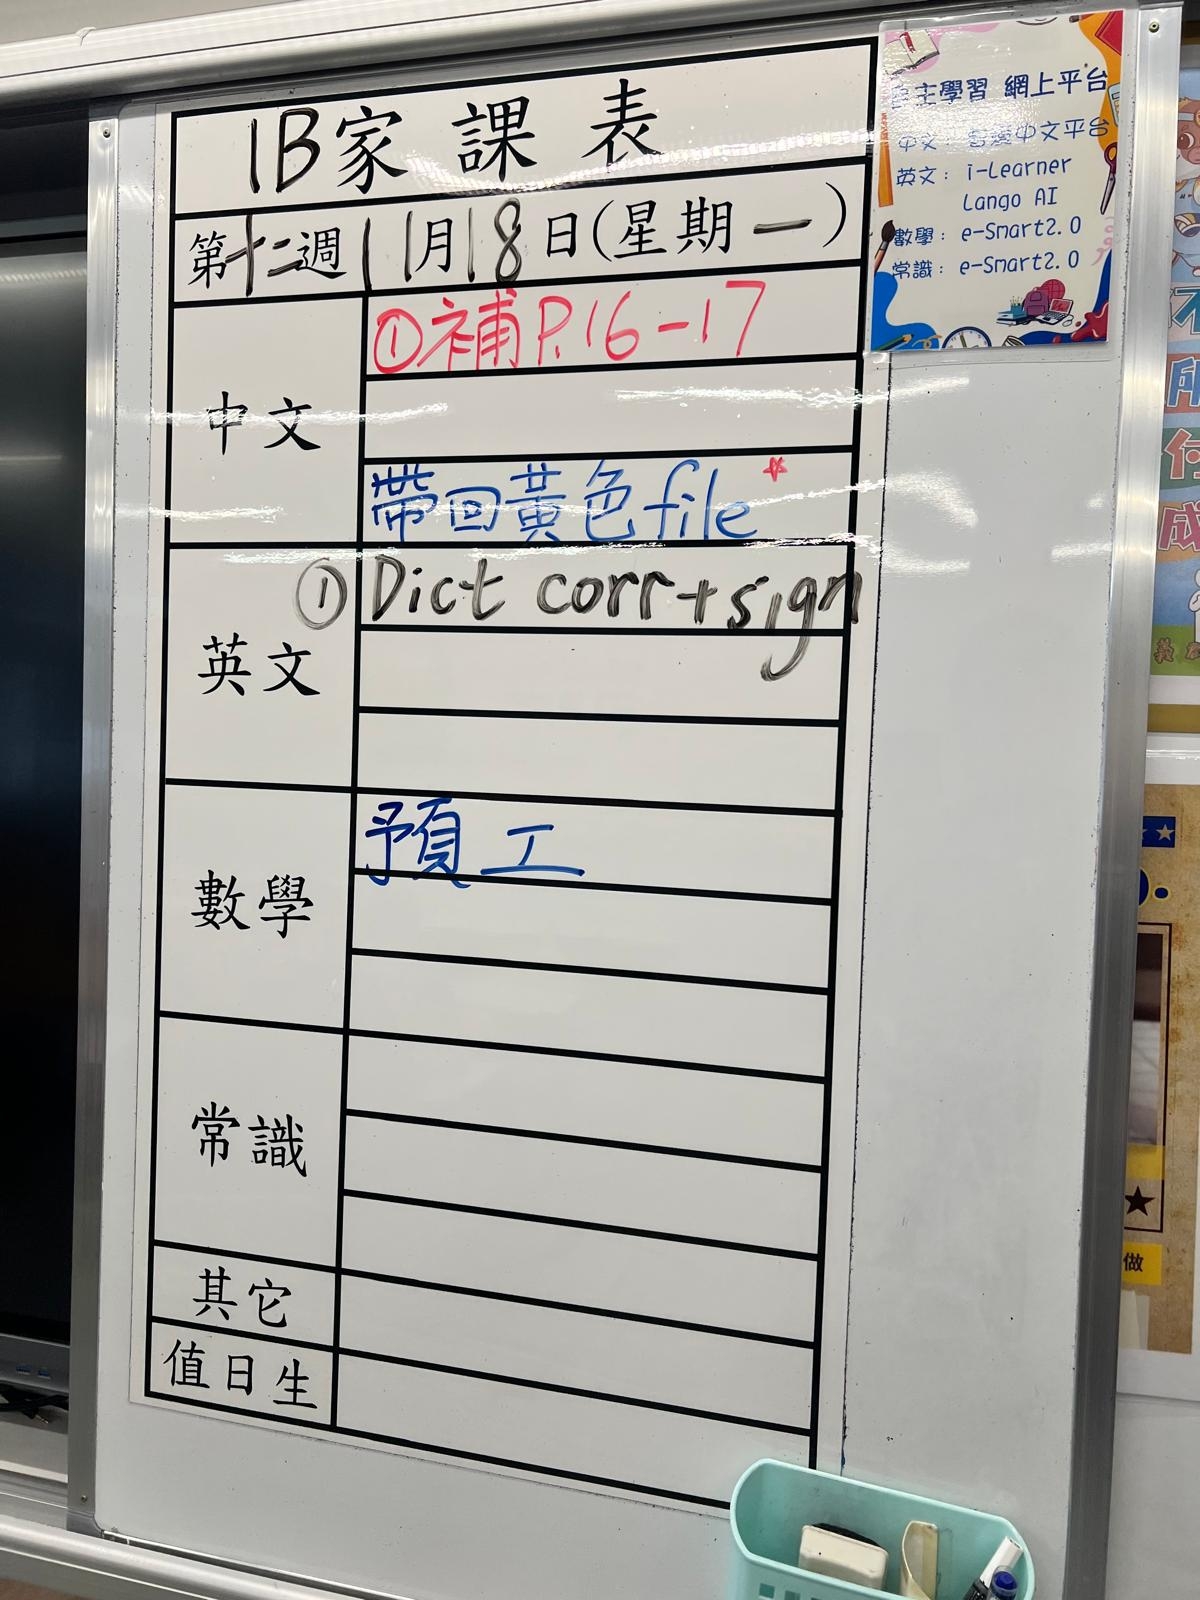 1B家課表
第十二週 11月18日(星期一)
中文
①補P.16-17
帶回黃色file*
英文
①Dict corr+sign
數學
預工
常識
其它
值日生
自主學習 網上平台
中文: 中文平台
英文: i-Learner
Lango AI
數學: e-Smart2.0
常識: e-Smart2.0
做